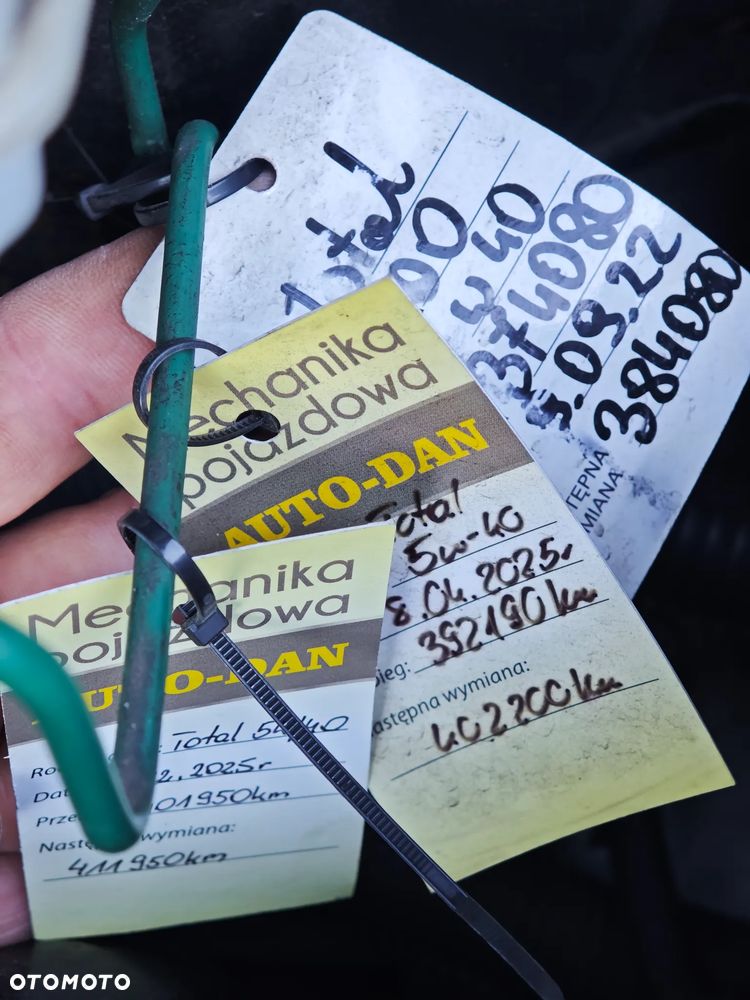 Total
00
40
374080
.09.22
384080
Mechanika
pojazdowa
AUTO-DAN
Total
5w-40
8.04.2025r
392190km
ieg:
astępna wymiana:
402200km
Mechanika
pojazdowa
AUTO-DAN
: Total 5W40
Ro
2.2025r
Dat
Prze 01950km
Nast wymiana:
411950km
OTOMOTO